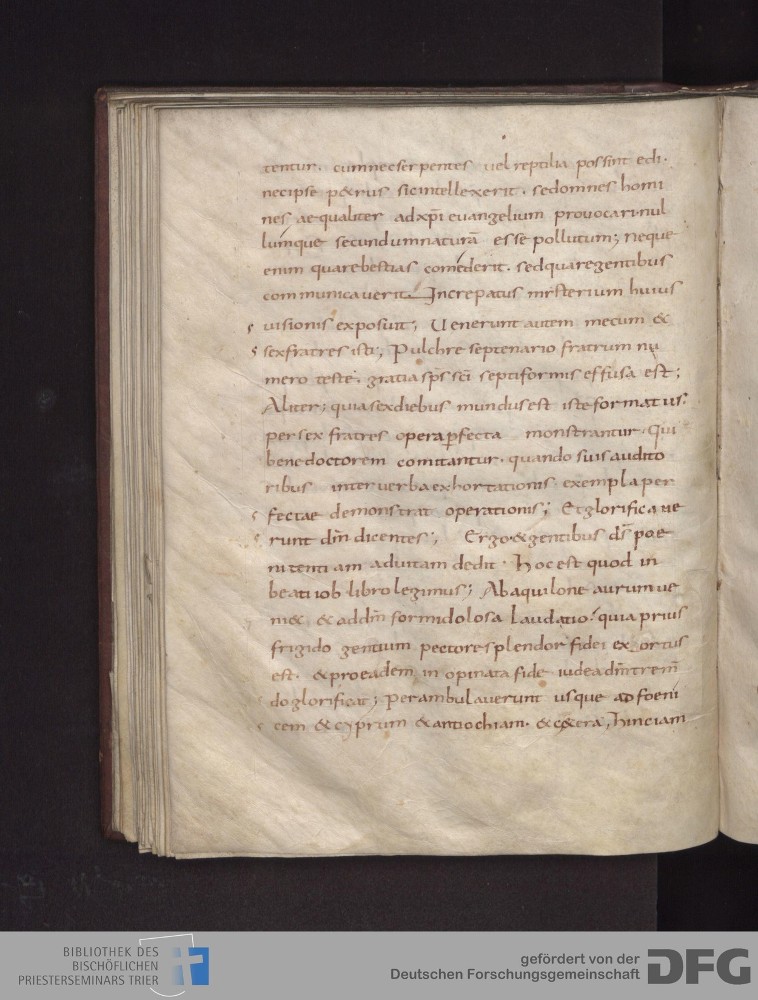 tentur. cumnecserpentes uel reptilia possint edi.
necipse petrus sic intellexerit. sedomnes homi
nes aequaliter adxp̄i euangelium prouocari. nul
lumque secundumnaturā esse pollutum; neque
enim quare bestias coméderit. sed quare gentibus
communicauerit. Increpatus misterium huius
uisionis exposuit; Uenerunt autem mecum &
sex fratres isti; Pulchre septenario fratrum nu
mero teste. gratia sp̄s sc̄i septiformis effusa est;
Aliter; quia sex diebus mundus est iste formatus.
per sex fratres opera perfecta monstrantur. Qui
bene doctorem comitantur. quando suis audito
ribus inter uerba exhortationis exempla per
fectae demonstrat operationis; Et glorificaue
runt dm̄ dicentes; Ergo & gentibus ds̄ poe
nitentiam ad uitam dedit. Hoc est quod in
beati iob libro legimus; Ab aquilone aurum ue
ni&. & ad dm̄ formidolosa laudatio. quia prius
frigido gentium pectore splendor fidei exortus
est. & pro eadem in opinata fide iudea dm̄ tremen̄
do glorificat; Perambulauerunt usque ad foeni
cem & cyprum & antiochiam. & c&era; Hinc iam
BIBLIOTHEK DES
BISCHÖFLICHEN
PRIESTERSEMINARS TRIER
gefördert von der
Deutschen Forschungsgemeinschaft
DFG